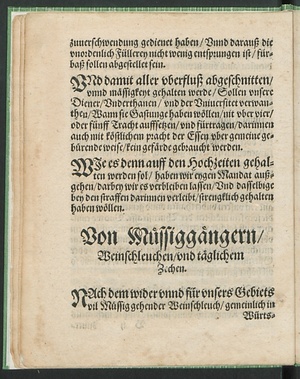 zuuerschwendung gedienet haben/ Vnnd darauß die
vnordenlich Füllerey nicht wenig entsprungen ist/ für-
baß sollen abgestellet sein.
VNd damit aller vberfluß abgeschnitten/
vnnd mässigkeyt gehalten werde/ Sollen vnsere
Diener/ Vnderthanen/ vnd der Vniuersitet verwan-
then/ Wann sie Gastunge haben wöllen/ nit vber vier/
oder fünff Tracht auffsetzen/ vnd fürtragen/ darinnen
auch mit köstlichem pracht der Essen vber gemeine ge-
bürende weise/ kein gefärde gebraucht werden.
WIe es denn auff den Hochzeiten gehal-
ten werden sol/ haben wir eygen Mandat außge-
gehen/ darbey wir es verbleiben lassen/ Vnd dasselbige
bey den straffen darinnen verleibt/ strenglich gehalten
haben wöllen.
Von Müssiggängern/
Weinschleuchen/ vnd täglichem
Zechen.
NAch dem wider vnnd für vnsers Gebiets
vil Müssig gehender Weinschleuch/ gemeinlich in
Würts-